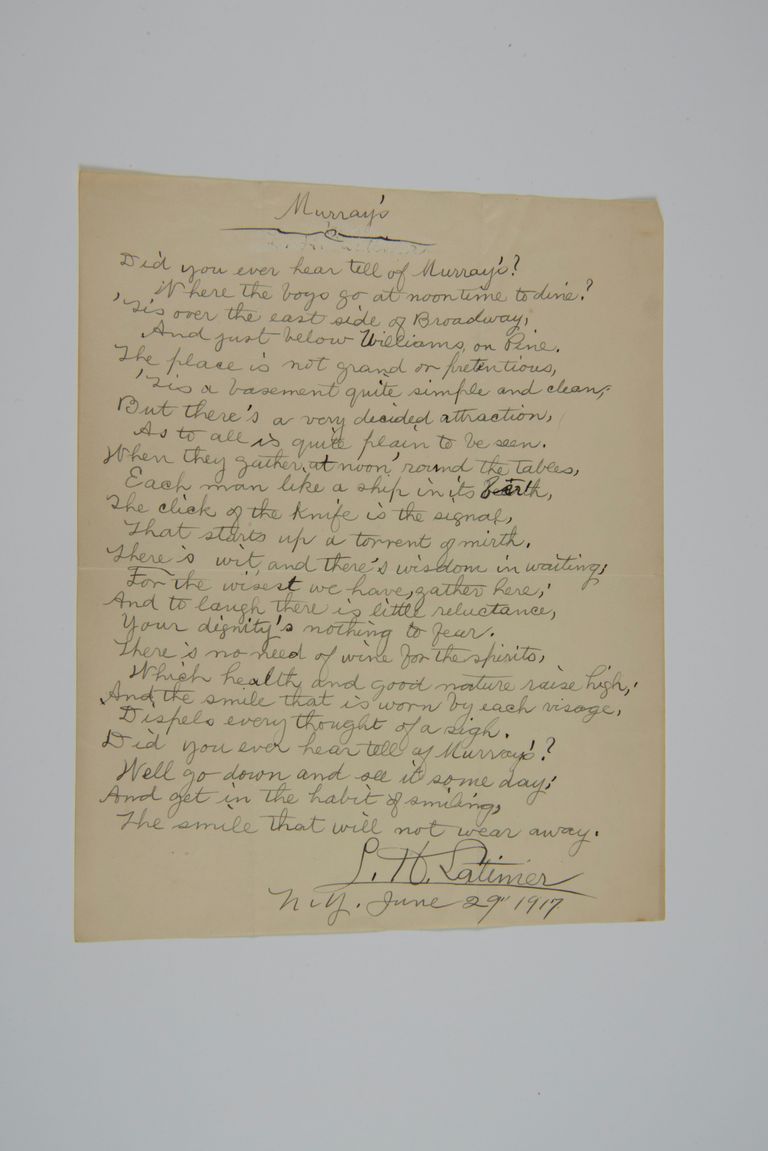 Murray's
Did you ever hear tell of Murray's?
Where the boys go at noontime to dine?
'Tis over the east side of Broadway,
And just below Williams, on Pine.
The place is not grand or pretentious,
'Tis a basement quite simple and clean,
But there's a very decided attraction,
As to all is quite plain to be seen.
When they gather, at noon, 'round the tables,
Each man like a ship in its berth,
The click of the knife is the signal,
That starts up a torrent of mirth.
There is wit, and there's wisdom in waiting;
For the wisest we have, gather here;
And to laugh there is little reluctance,
Your dignity's nothing to fear.
There is no need of wine for the spirits,
Which health and good nature raise high;
And the smile that is worn by each visage,
Dispels every thought of a sigh.
Did you ever hear tell of Murray's?
Well go down and see it some day;
And get in the habit of smiling,
The smile that will not wear away.
L. H. Latimer
N.Y. June 29" 1917